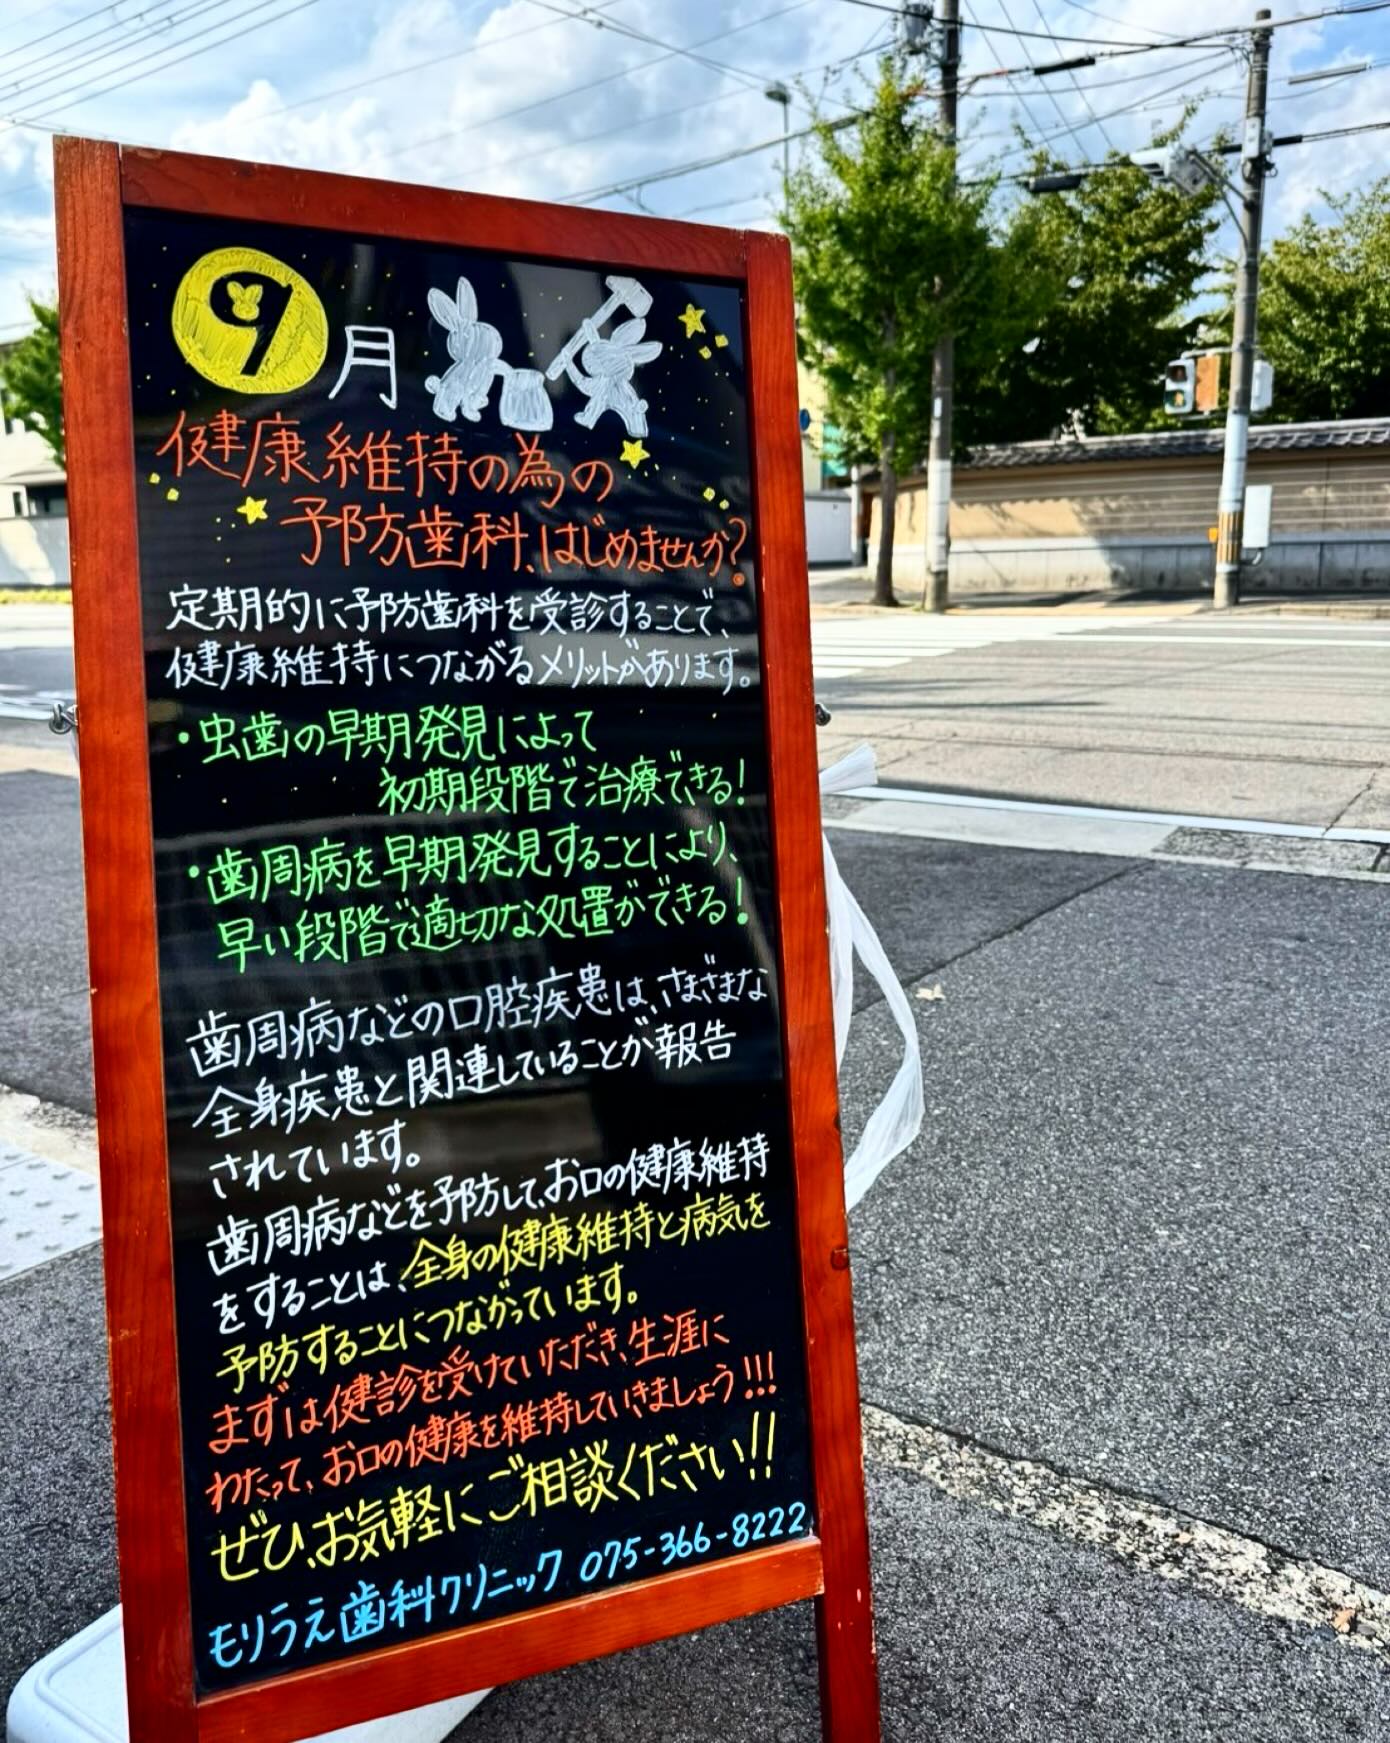 9月
健康維持の為の
予防歯科、はじめませんか?
定期的に予防歯科を受診することで、
健康維持につながるメリットがあります。
・虫歯の早期発見によって
初期段階で治療できる!
・歯周病を早期発見することにより、
早い段階で適切な処置ができる!
歯周病などの口腔疾患は、さまざまな
全身疾患と関連していることが報告
されています。
歯周病などを予防して、お口の健康維持
をすることは、全身の健康維持と病気を
予防することにつながっています。
まずは健診を受けていただき、生涯に
わたって、お口の健康を維持していきましょう!!!
ぜひ、お気軽にご相談ください!!
モリうえ歯科クリニック 075-366-8222